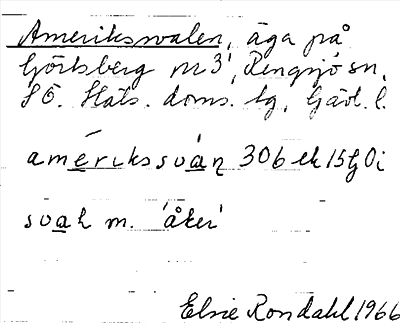 Ameriksvalen, äga på
Görtsberg nr 3, Rengsjö sn,
S Ö. Häls. doms. lg, Gävl. l.
amérikssván 306 ek 15G Oi
svaḷ m. 'åker'
Elsie Rondahl 1966